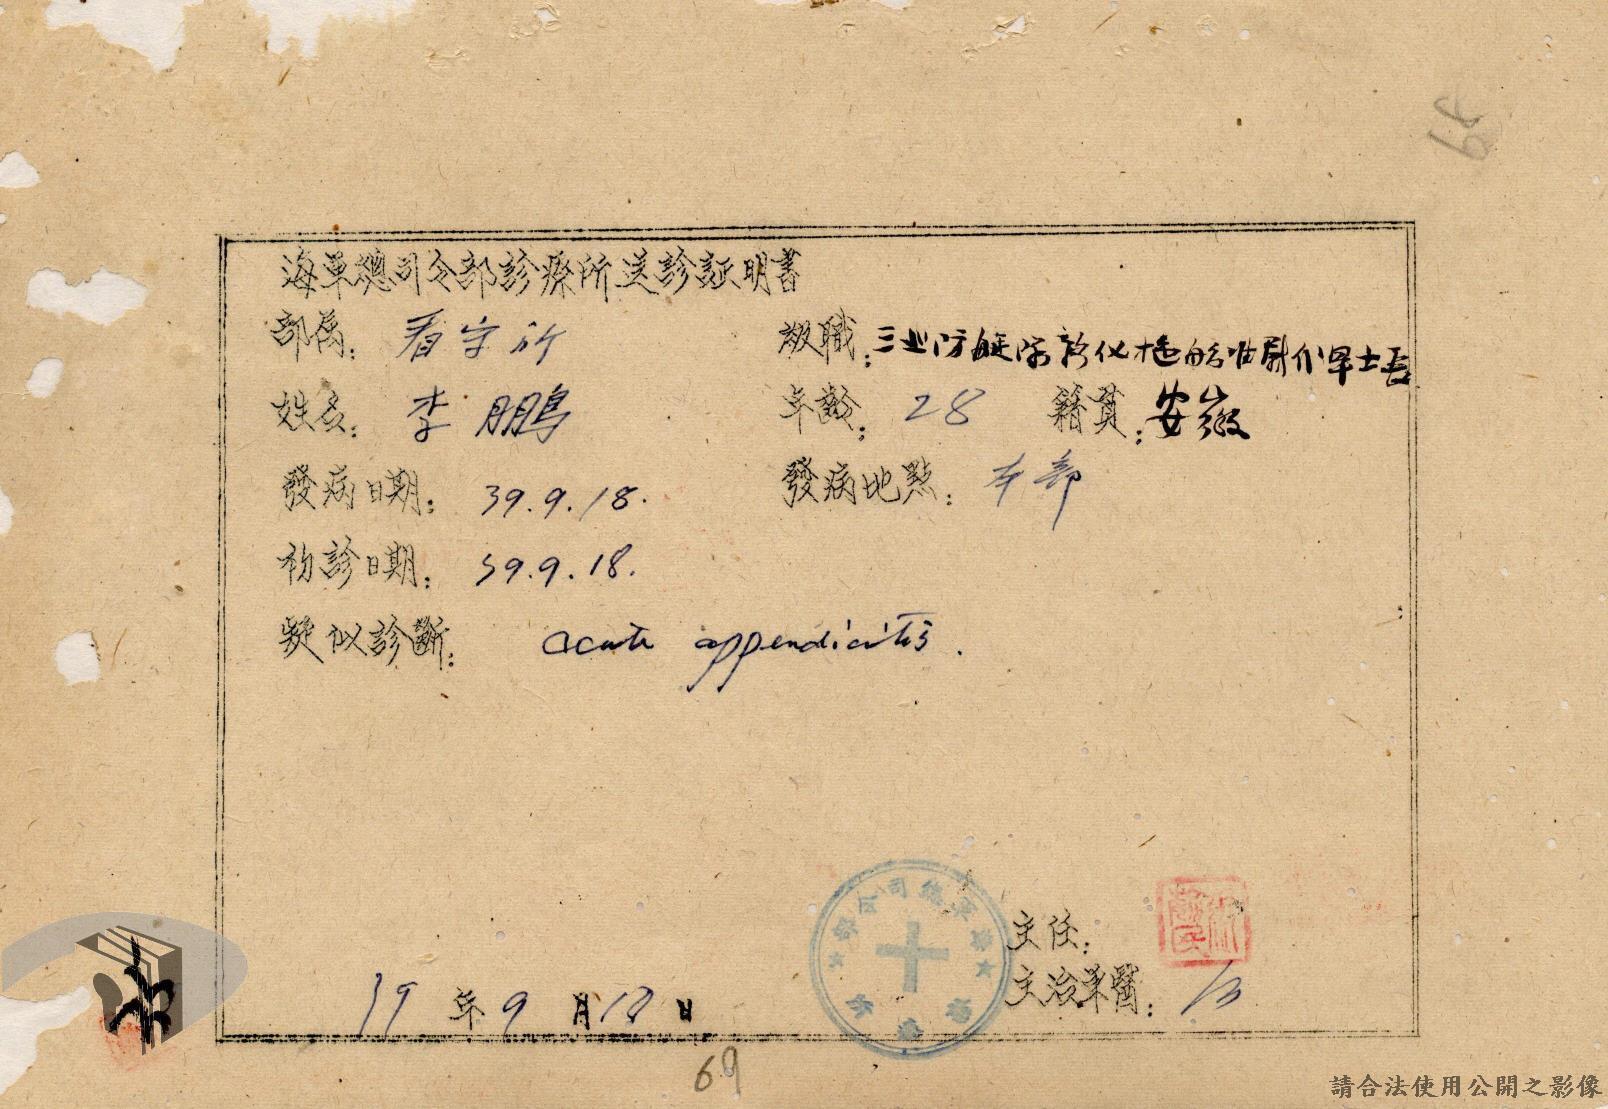 海軍總司令部診療所送診証明書
部屬：看守所 級職：三
姓名：李鵬 年齡：28 籍貫：安徽
發病日期：39.9.18. 發病地點：本部
初診日期：39.9.18.
疑似診斷：acute appendicitis.
主任：
主治軍醫：
39年9月18日
海軍總司令部診療所
69
請合法使用公開之影像